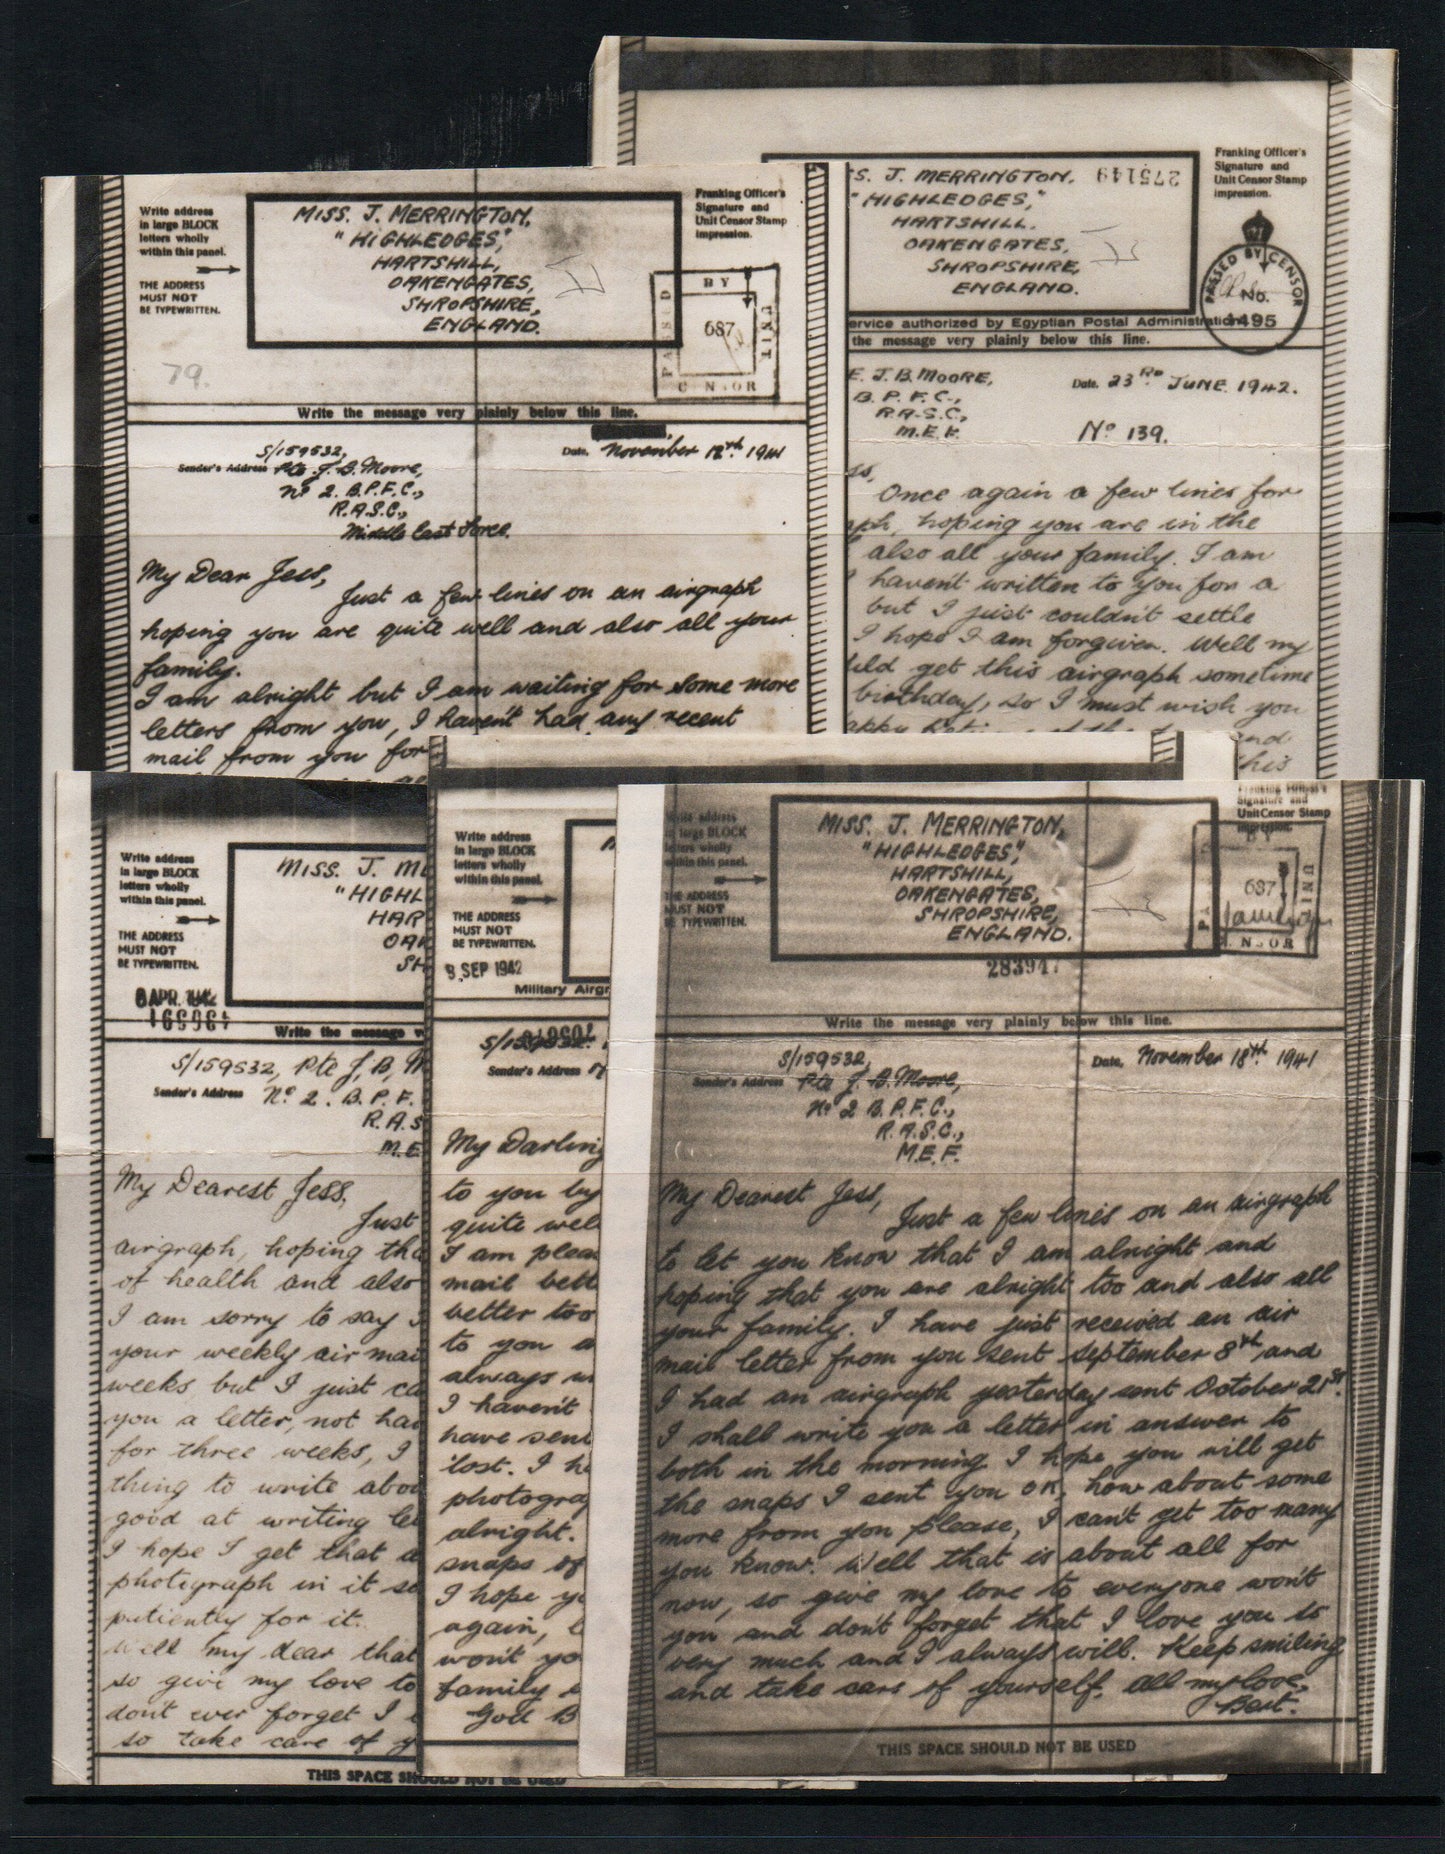 Write address
in large BLOCK
letters wholly
within this panel.
THE ADDRESS
MUST NOT
BE TYPEWRITTEN.
MISS. J. MERRINGTON,
"HIGHLEDGES,"
HARTSHILL,
OAKENGATES,
SHROPSHIRE,
ENGLAND.
Franking Officer's
Signature and
Unit Censor Stamp
impression.
PASSED
BY
UNIT
687
79.
Write the message very plainly below this line.
S/159532,
Sender's Address Pte J. B. Moore,
No 2. B.P.F.C.,
R.A.S.C.,
Middle East Force.
Date. November 12th 1941
My Dear Jess,
Just a few lines on an airgraph
hoping you are quite well and also all your
family.
I am alright but I am waiting for some more
letters from you, I haven't had any recent
mail from you for
S. J. MERRINGTON.
"HIGHLEDGES,"
HARTSHILL.
OAKENGATES,
SHROPSHIRE,
ENGLAND.
275149
Franking Officer's
Signature and
Unit Censor Stamp
impression.
PASSED BY CENSOR
No.
1495
ervice authorized by Egyptian Postal Administration
the message very plainly below this line.
E. J. B. MOORE,
B. P. F. C.,
R.A.S.C,
M.E.F.
Date. 23RD JUNE. 1942.
No 139.
ss,
Once again a few lines for
ph, hoping you are in the
also all your family. I am
I havent written to you for a
but I just couldn't settle
I hope I am forgiven. Well my
uld get this airgraph sometime
birthday, so I must wish you
and
this
Write address
in large BLOCK
letters wholly
within this panel.
THE ADDRESS
MUST NOT
BE TYPEWRITTEN.
MISS. J. ME
"HIGHL
HAR
OAK
SH
8 APR. 1942
Write the message v
S/159532, Pte J, B, M
Sender's Address No 2. B. P. F.
R.A.S
M.E
My Dearest Jess,
Just
airgraph, hoping tha
of health and also
I am sorry to say I
your weekly air mai
weeks but I just ca
you a letter, not hav
for three weeks, I
thing to write abou
good at writing let
I hope I get that a
photograph in it so
patiently for it.
Well my dear that
so give my love to
don't ever forget I
so take care of y
THIS SPACE SHOULD NOT BE USED
Write address
in large BLOCK
letters wholly
within this panel.
THE ADDRESS
MUST NOT
BE TYPEWRITTEN.
3 SEP 1942
Military Airgr
S/159532.
Sender's Address
My Darling
to you by
quite well
I am pleas
mail bett
better too
to you a
always w
I haven't
have sent
lost. I h
photogra
alright.
snaps of
I hope yo
again,
won't yo
family
God B
Write address
in large BLOCK
letters wholly
within this panel.
THE ADDRESS
MUST NOT
BE TYPEWRITTEN.
MISS. J. MERRINGTON,
"HIGHLEDGES",
HARTSHILL,
OAKENGATES,
SHROPSHIRE,
ENGLAND.
283947
Franking Officer's
Signature and
Unit Censor Stamp
impression.
BY
UNIT
687
Write the message very plainly below this line.
S/159532,
Sender's Address Pte J. B. Moore,
No 2 B. P. F. C.,
R.A.S.C.,
M.E.F.
Date, November 18th 1941
My Dearest Jess,
Just a few lines on an airgraph
to let you know that I am alright and
hoping that you are alright too and also all
your family. I have just received an air
mail letter from you sent September 8th, and
I had an airgraph yesterday sent October 21st.
I shall write you a letter in answer to
both in the morning I hope you will get
the snaps I sent you OK, how about some
more from you please, I can't get too many
you know. Well that is about all for
now, so give my love to everyone won't
you and don't forget that I love you so
very much and I always will. Keep smiling
and take care of yourself. All my love,
Bert.
THIS SPACE SHOULD NOT BE USED